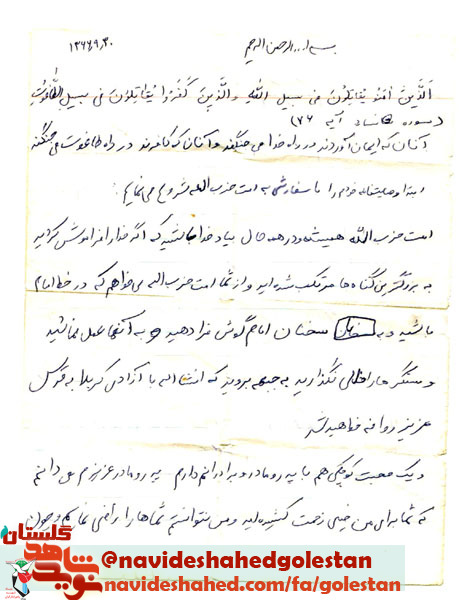 بسم الله الرحمن الرحیم ۱۳۶۶/۹/۳۰
اَلَّذینَ امَنوُ یُقاتِلوُنَ فی سبیلِ اللهِ وَالَّذینَ کَفَرُوا یُقاتِلوُنَ فی سبیلِ الطّاغُوتِ
(سوره نساء آیه ۷۶)
آنان که ایمان آوردند در راه خدا می جنگند و آنان که کافرند در راه طاغوت می جنگند
ابتدا وصایتنامه خود را با سفارشی به امت حزب الله شروع می نمایم
امت حزب الله همیشه و در همه حال بیاد خدا باشید که اگر خدا را فراموش کردید
به بزرگترین گناه ها مرتکب شده اید و از شما امت حزب اله می خواهم که در خط امام
باشید و به سخنان امام گوش فرا دهید و به آنها عمل نمائید
و سنگرها را خالی نگذارید به جبهه بروید که انشااله با آزادی کربلا به قدس
عزیز روانه خواهید شد
و یک صحبت کوچکی هم با پدر و مادر و برادرانم دارم پدر و مادر عزیزم می دانم
که شما برای من خیلی زحمت کشیده اید و من نتوانستم شماها را راضی نمایم و چون
نوید شاهد گلستان
@navideshahedgolestan
navideshahed.com/fa/golestan